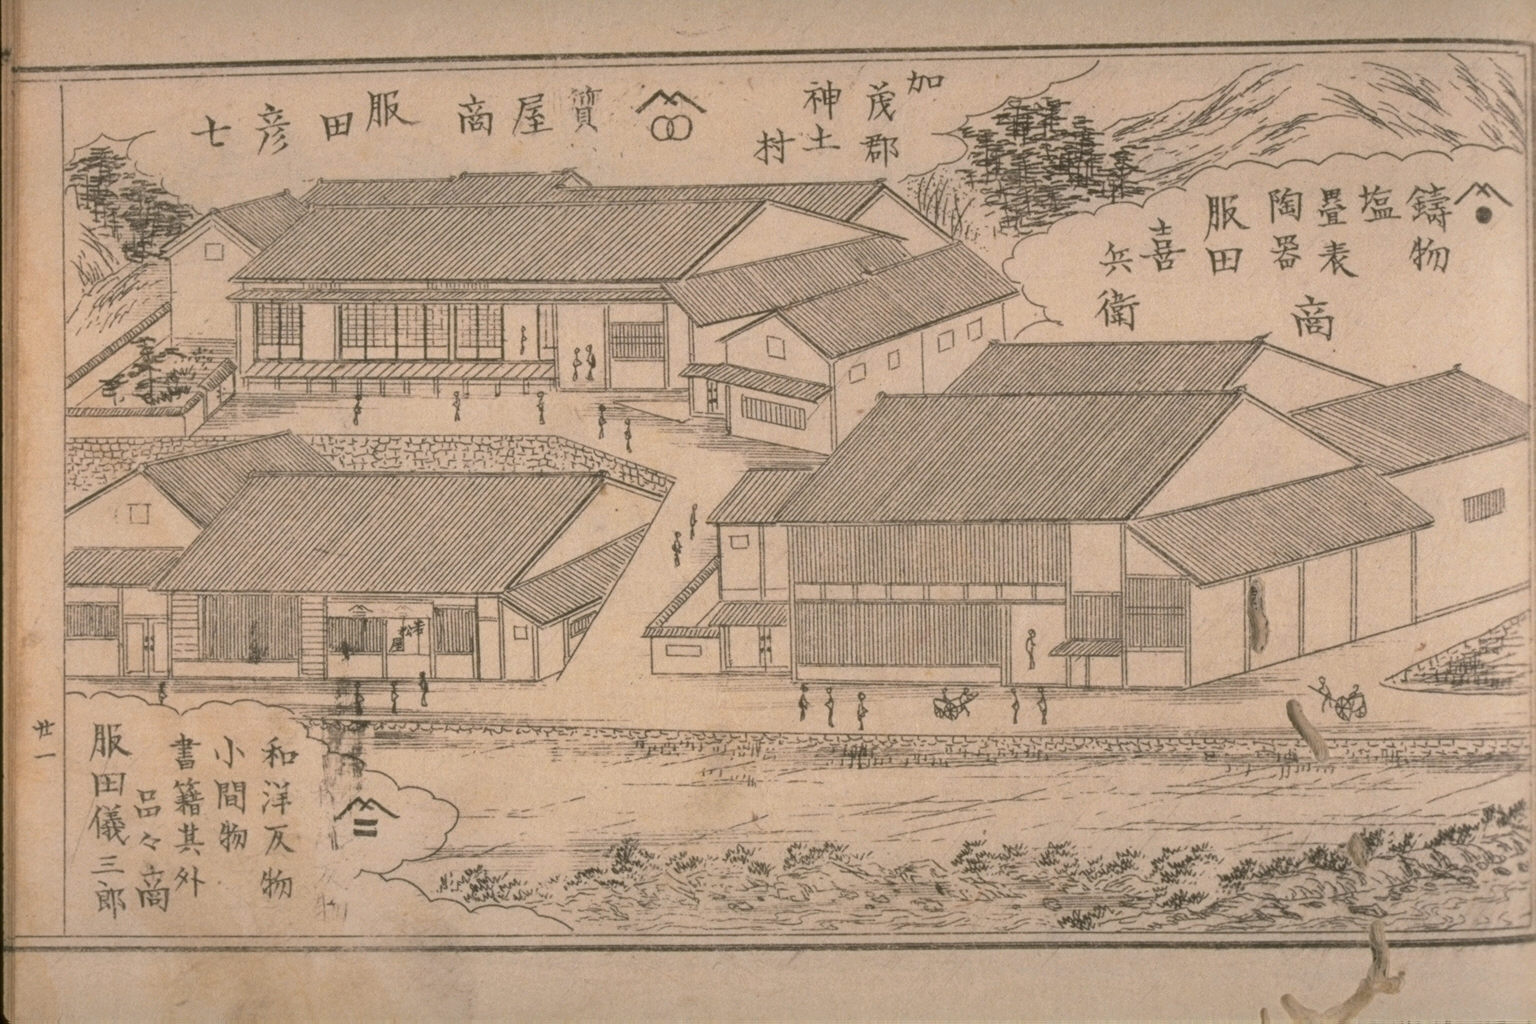 加茂郡
神土村
質屋商
服田彦七
鋳物
塩
畳表
陶器
商
服田喜兵衛
和洋反物
小間物
書籍其外
品々商
服田儀三郎
廿一